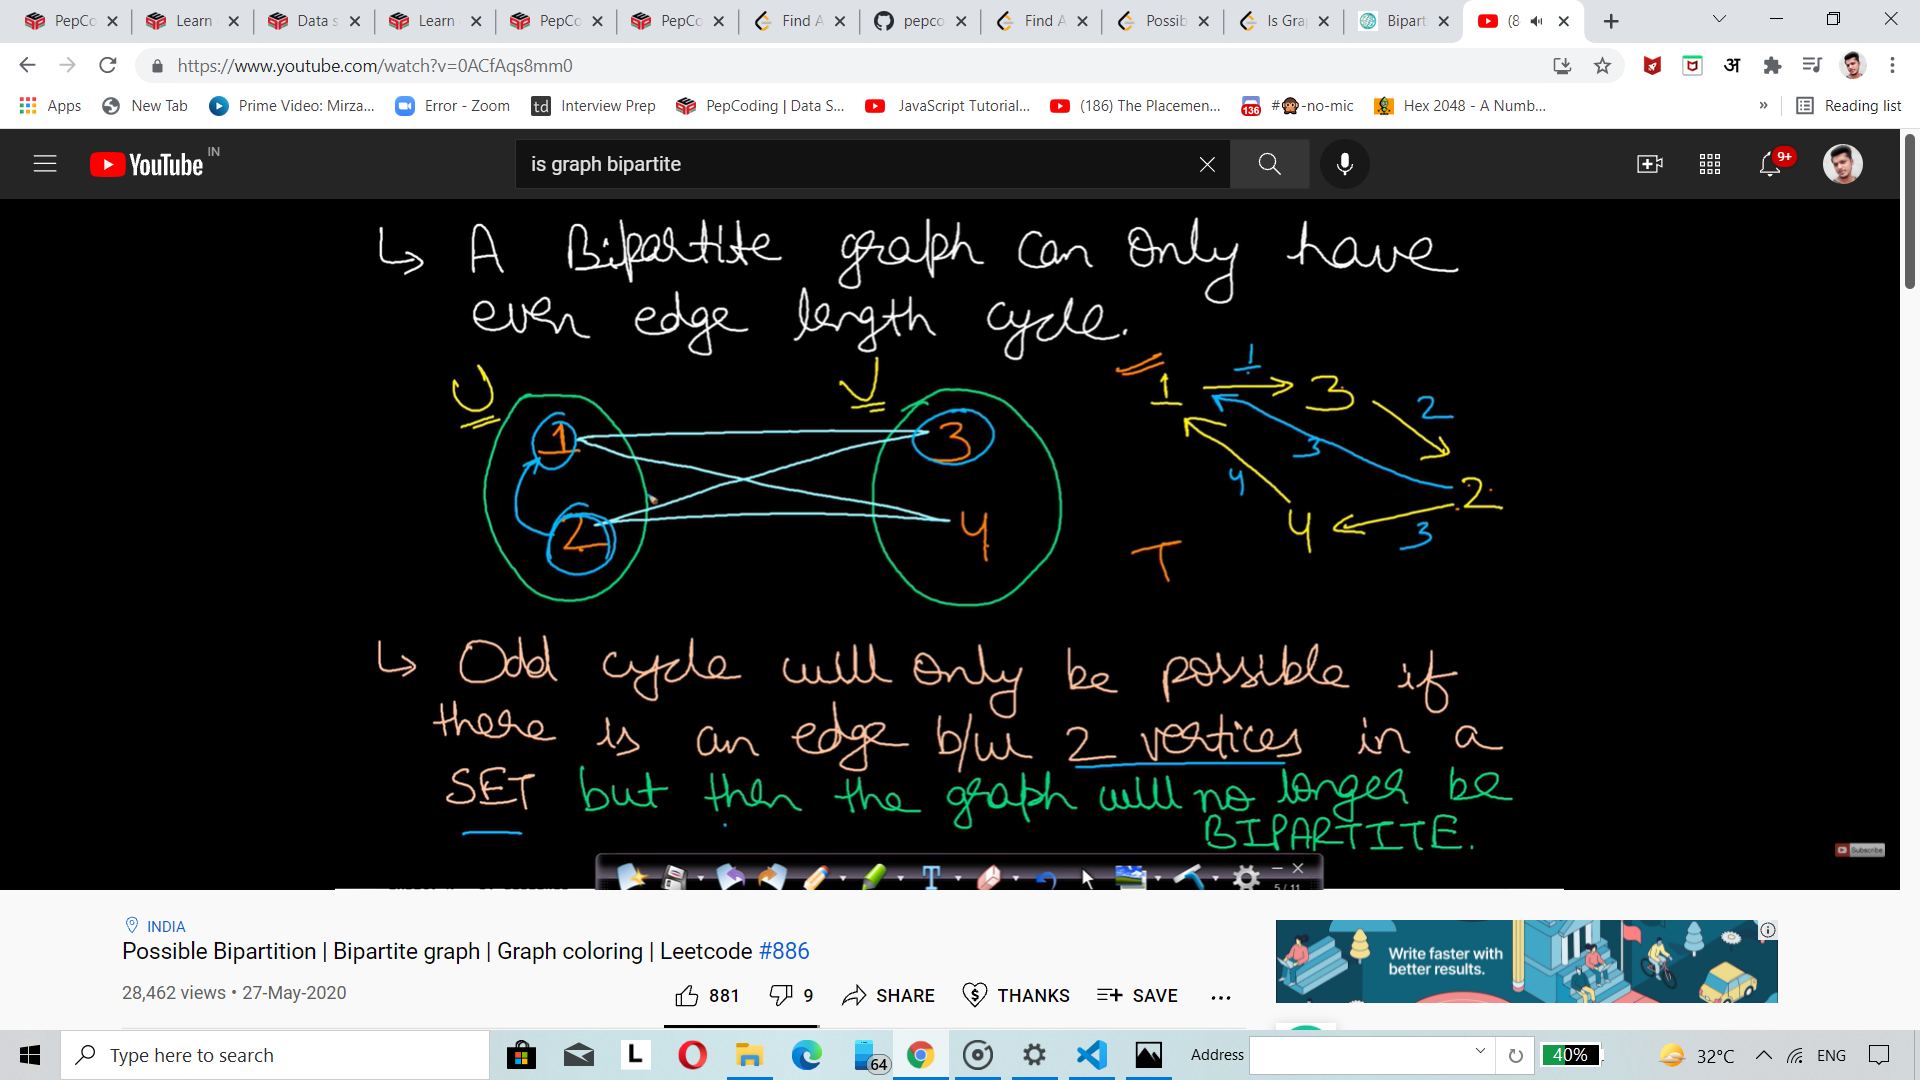 PepCo
Learn
Data s
Learn
PepCo
PepCo
Find A
pepco
Find A
Possib
Is Gra
Bipart
(8
https://www.youtube.com/watch?v=0ACfAqs8mm0
Apps
New Tab
Prime Video: Mirza...
Error - Zoom
td
Interview Prep
PepCoding | Data S...
JavaScript Tutorial...
(186) The Placemen...
136
#🙊-no-mic
Hex 2048 - A Numb...
»
Reading list
अ
YouTube IN
is graph bipartite
9+
↳ A Bipartite graph can only have
even edge length cycle.
U
V
1
2
3
4
1
1
3
2
3
2
4
4
3
T
↳ Odd cycle will only be possible if
there is an edge b/w 2 vertices in a
SET but then the graph will no longer be
BIPARTITE.
Subscribe
T
5/11
INDIA
Possible Bipartition | Bipartite graph | Graph coloring | Leetcode #886
28,462 views • 27-May-2020
881
9
SHARE
THANKS
SAVE
...
Write faster with
better results.
Type here to search
L
64
Address
40%
32°C
ENG